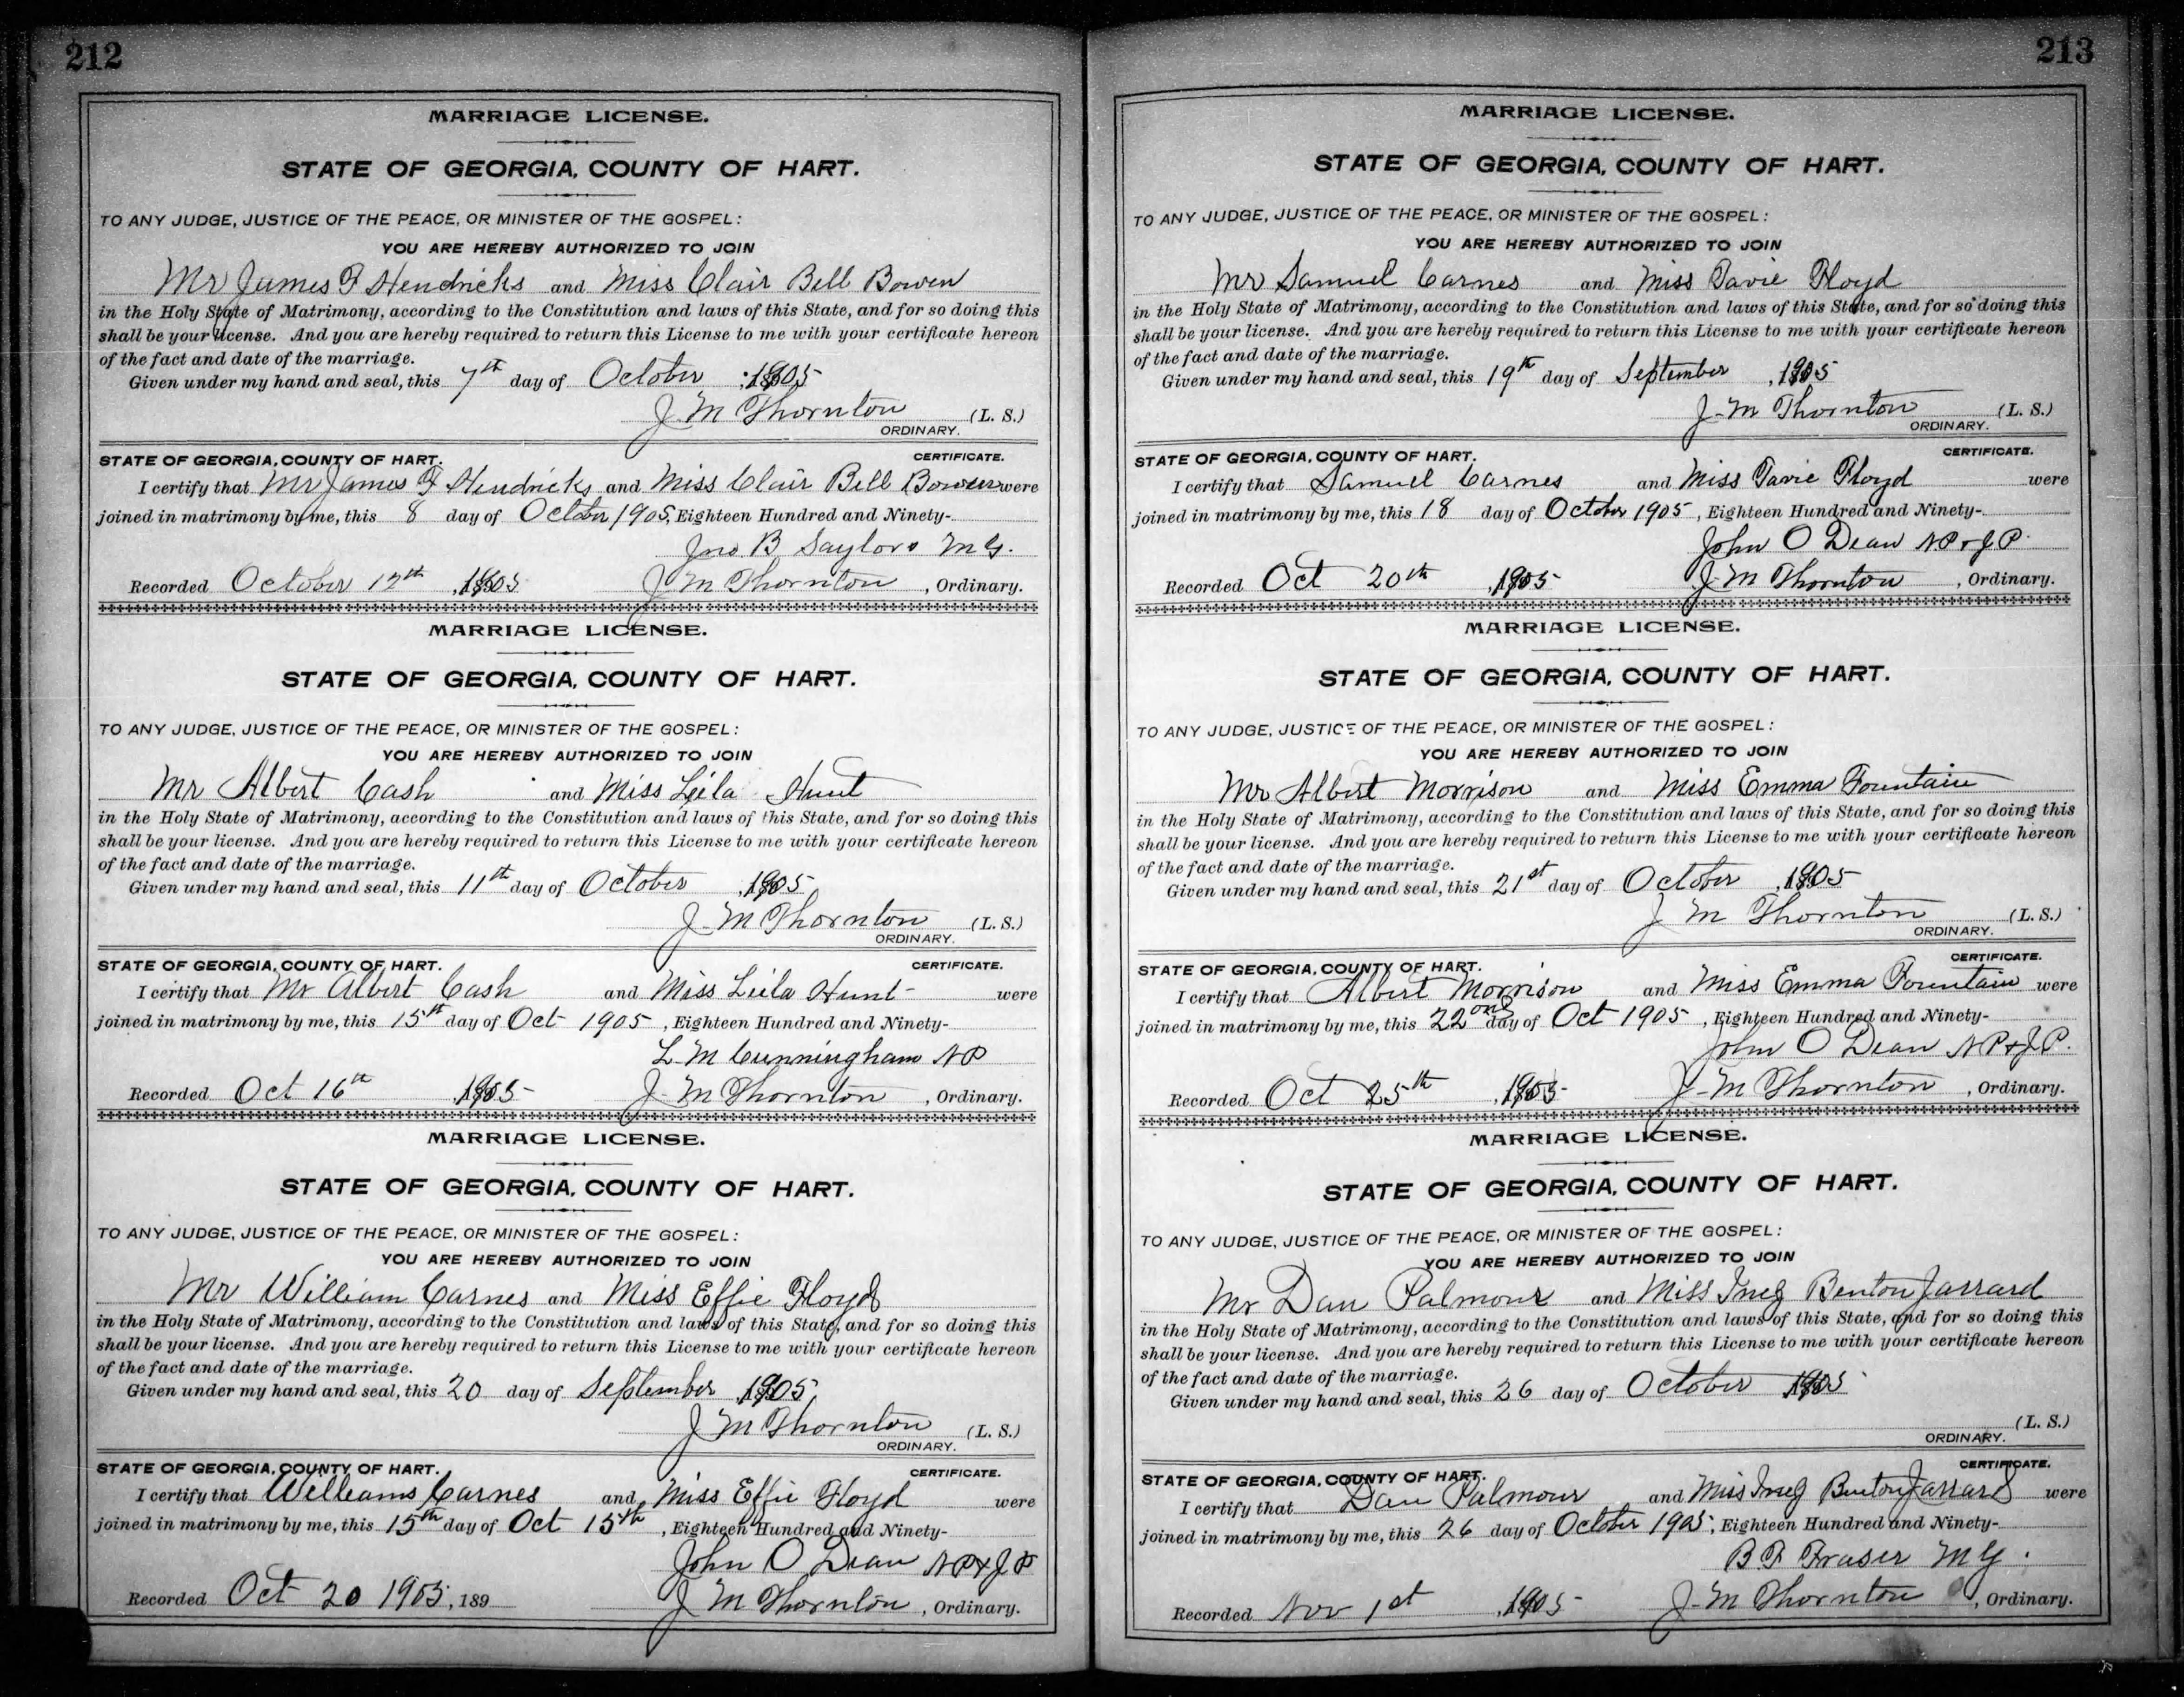 212
MARRIAGE LICENSE.
STATE OF GEORGIA, COUNTY OF HART.
TO ANY JUDGE, JUSTICE OF THE PEACE, OR MINISTER OF THE GOSPEL:
YOU ARE HEREBY AUTHORIZED TO JOIN
Mr James F Hendricks and Miss Clair Bell Bowen
in the Holy State of Matrimony, according to the Constitution and laws of this State, and for so doing this
shall be your license. And you are hereby required to return this License to me with your certificate hereon
of the fact and date of the marriage.
Given under my hand and seal, this 7th day of October 1905
J. M Thornton (L. S.)
ORDINARY.
STATE OF GEORGIA, COUNTY OF HART. CERTIFICATE.
I certify that Mr James F Hendricks and Miss Clair Bell Bowen were
joined in matrimony by me, this 8 day of October 1905, Eighteen Hundred and Ninety-
Jno B Saylors M G.
Recorded October 17th, 1905 J M Thornton, Ordinary.
MARRIAGE LICENSE.
STATE OF GEORGIA, COUNTY OF HART.
TO ANY JUDGE, JUSTICE OF THE PEACE, OR MINISTER OF THE GOSPEL:
YOU ARE HEREBY AUTHORIZED TO JOIN
Mr Albert Cash and Miss Leila Hunt
in the Holy State of Matrimony, according to the Constitution and laws of this State, and for so doing this
shall be your license. And you are hereby required to return this License to me with your certificate hereon
of the fact and date of the marriage.
Given under my hand and seal, this 11th day of October, 1905
J. M Thornton (L. S.)
ORDINARY.
STATE OF GEORGIA, COUNTY OF HART. CERTIFICATE.
I certify that Mr Albert Cash and Miss Leila Hunt were
joined in matrimony by me, this 15th day of Oct 1905, Eighteen Hundred and Ninety-
L. M Cunningham N P
Recorded Oct 16th, 1905 J. M Thornton, Ordinary.
MARRIAGE LICENSE.
STATE OF GEORGIA, COUNTY OF HART.
TO ANY JUDGE, JUSTICE OF THE PEACE, OR MINISTER OF THE GOSPEL:
YOU ARE HEREBY AUTHORIZED TO JOIN
Mr William Carnes and Miss Effie Floyd
in the Holy State of Matrimony, according to the Constitution and laws of this State, and for so doing this
shall be your license. And you are hereby required to return this License to me with your certificate hereon
of the fact and date of the marriage.
Given under my hand and seal, this 20 day of September 1905
J M Thornton (L. S.)
ORDINARY.
STATE OF GEORGIA, COUNTY OF HART. CERTIFICATE.
I certify that Williams Carnes and Miss Effie Floyd were
joined in matrimony by me, this 15th day of Oct 15th, Eighteen Hundred and Ninety-
John O Dean N P & J P
Recorded Oct 20 1905, 189 J M Thornton, Ordinary.
213
MARRIAGE LICENSE.
STATE OF GEORGIA, COUNTY OF HART.
TO ANY JUDGE, JUSTICE OF THE PEACE, OR MINISTER OF THE GOSPEL:
YOU ARE HEREBY AUTHORIZED TO JOIN
Mr Samuel Carnes and Miss Tavie Floyd
in the Holy State of Matrimony, according to the Constitution and laws of this State, and for so doing this
shall be your license. And you are hereby required to return this License to me with your certificate hereon
of the fact and date of the marriage.
Given under my hand and seal, this 19th day of September, 1905
J. M Thornton (L. S.)
ORDINARY.
STATE OF GEORGIA, COUNTY OF HART. CERTIFICATE.
I certify that Samuel Carnes and Miss Tavie Floyd were
joined in matrimony by me, this 18 day of October 1905, Eighteen Hundred and Ninety-
John O Dean N P & J P.
Recorded Oct 20th, 1905 J. M Thornton, Ordinary.
MARRIAGE LICENSE.
STATE OF GEORGIA, COUNTY OF HART.
TO ANY JUDGE, JUSTICE OF THE PEACE, OR MINISTER OF THE GOSPEL:
YOU ARE HEREBY AUTHORIZED TO JOIN
Mr Albert Morrison and Miss Emma Fountain
in the Holy State of Matrimony, according to the Constitution and laws of this State, and for so doing this
shall be your license. And you are hereby required to return this License to me with your certificate hereon
of the fact and date of the marriage.
Given under my hand and seal, this 21st day of October, 1905
J M Thornton (L. S.)
ORDINARY.
STATE OF GEORGIA, COUNTY OF HART. CERTIFICATE.
I certify that Albert Morrison and Miss Emma Fountain were
joined in matrimony by me, this 22ond day of Oct 1905, Eighteen Hundred and Ninety-
John O Dean N P & J P.
Recorded Oct 25th, 1905 J. M Thornton, Ordinary.
MARRIAGE LICENSE.
STATE OF GEORGIA, COUNTY OF HART.
TO ANY JUDGE, JUSTICE OF THE PEACE, OR MINISTER OF THE GOSPEL:
YOU ARE HEREBY AUTHORIZED TO JOIN
Mr Dan Palmour and Miss Ineg Benton Jarrard
in the Holy State of Matrimony, according to the Constitution and laws of this State, and for so doing this
shall be your license. And you are hereby required to return this License to me with your certificate hereon
of the fact and date of the marriage.
Given under my hand and seal, this 26 day of October 1905
(L. S.)
ORDINARY.
STATE OF GEORGIA, COUNTY OF HART. CERTIFICATE.
I certify that Dan Palmour and Miss Ineg Benton Jarrard were
joined in matrimony by me, this 26 day of October 1905, Eighteen Hundred and Ninety-
B. F Fraser M G.
Recorded Nov 1st, 1905 J. M Thornton, Ordinary.